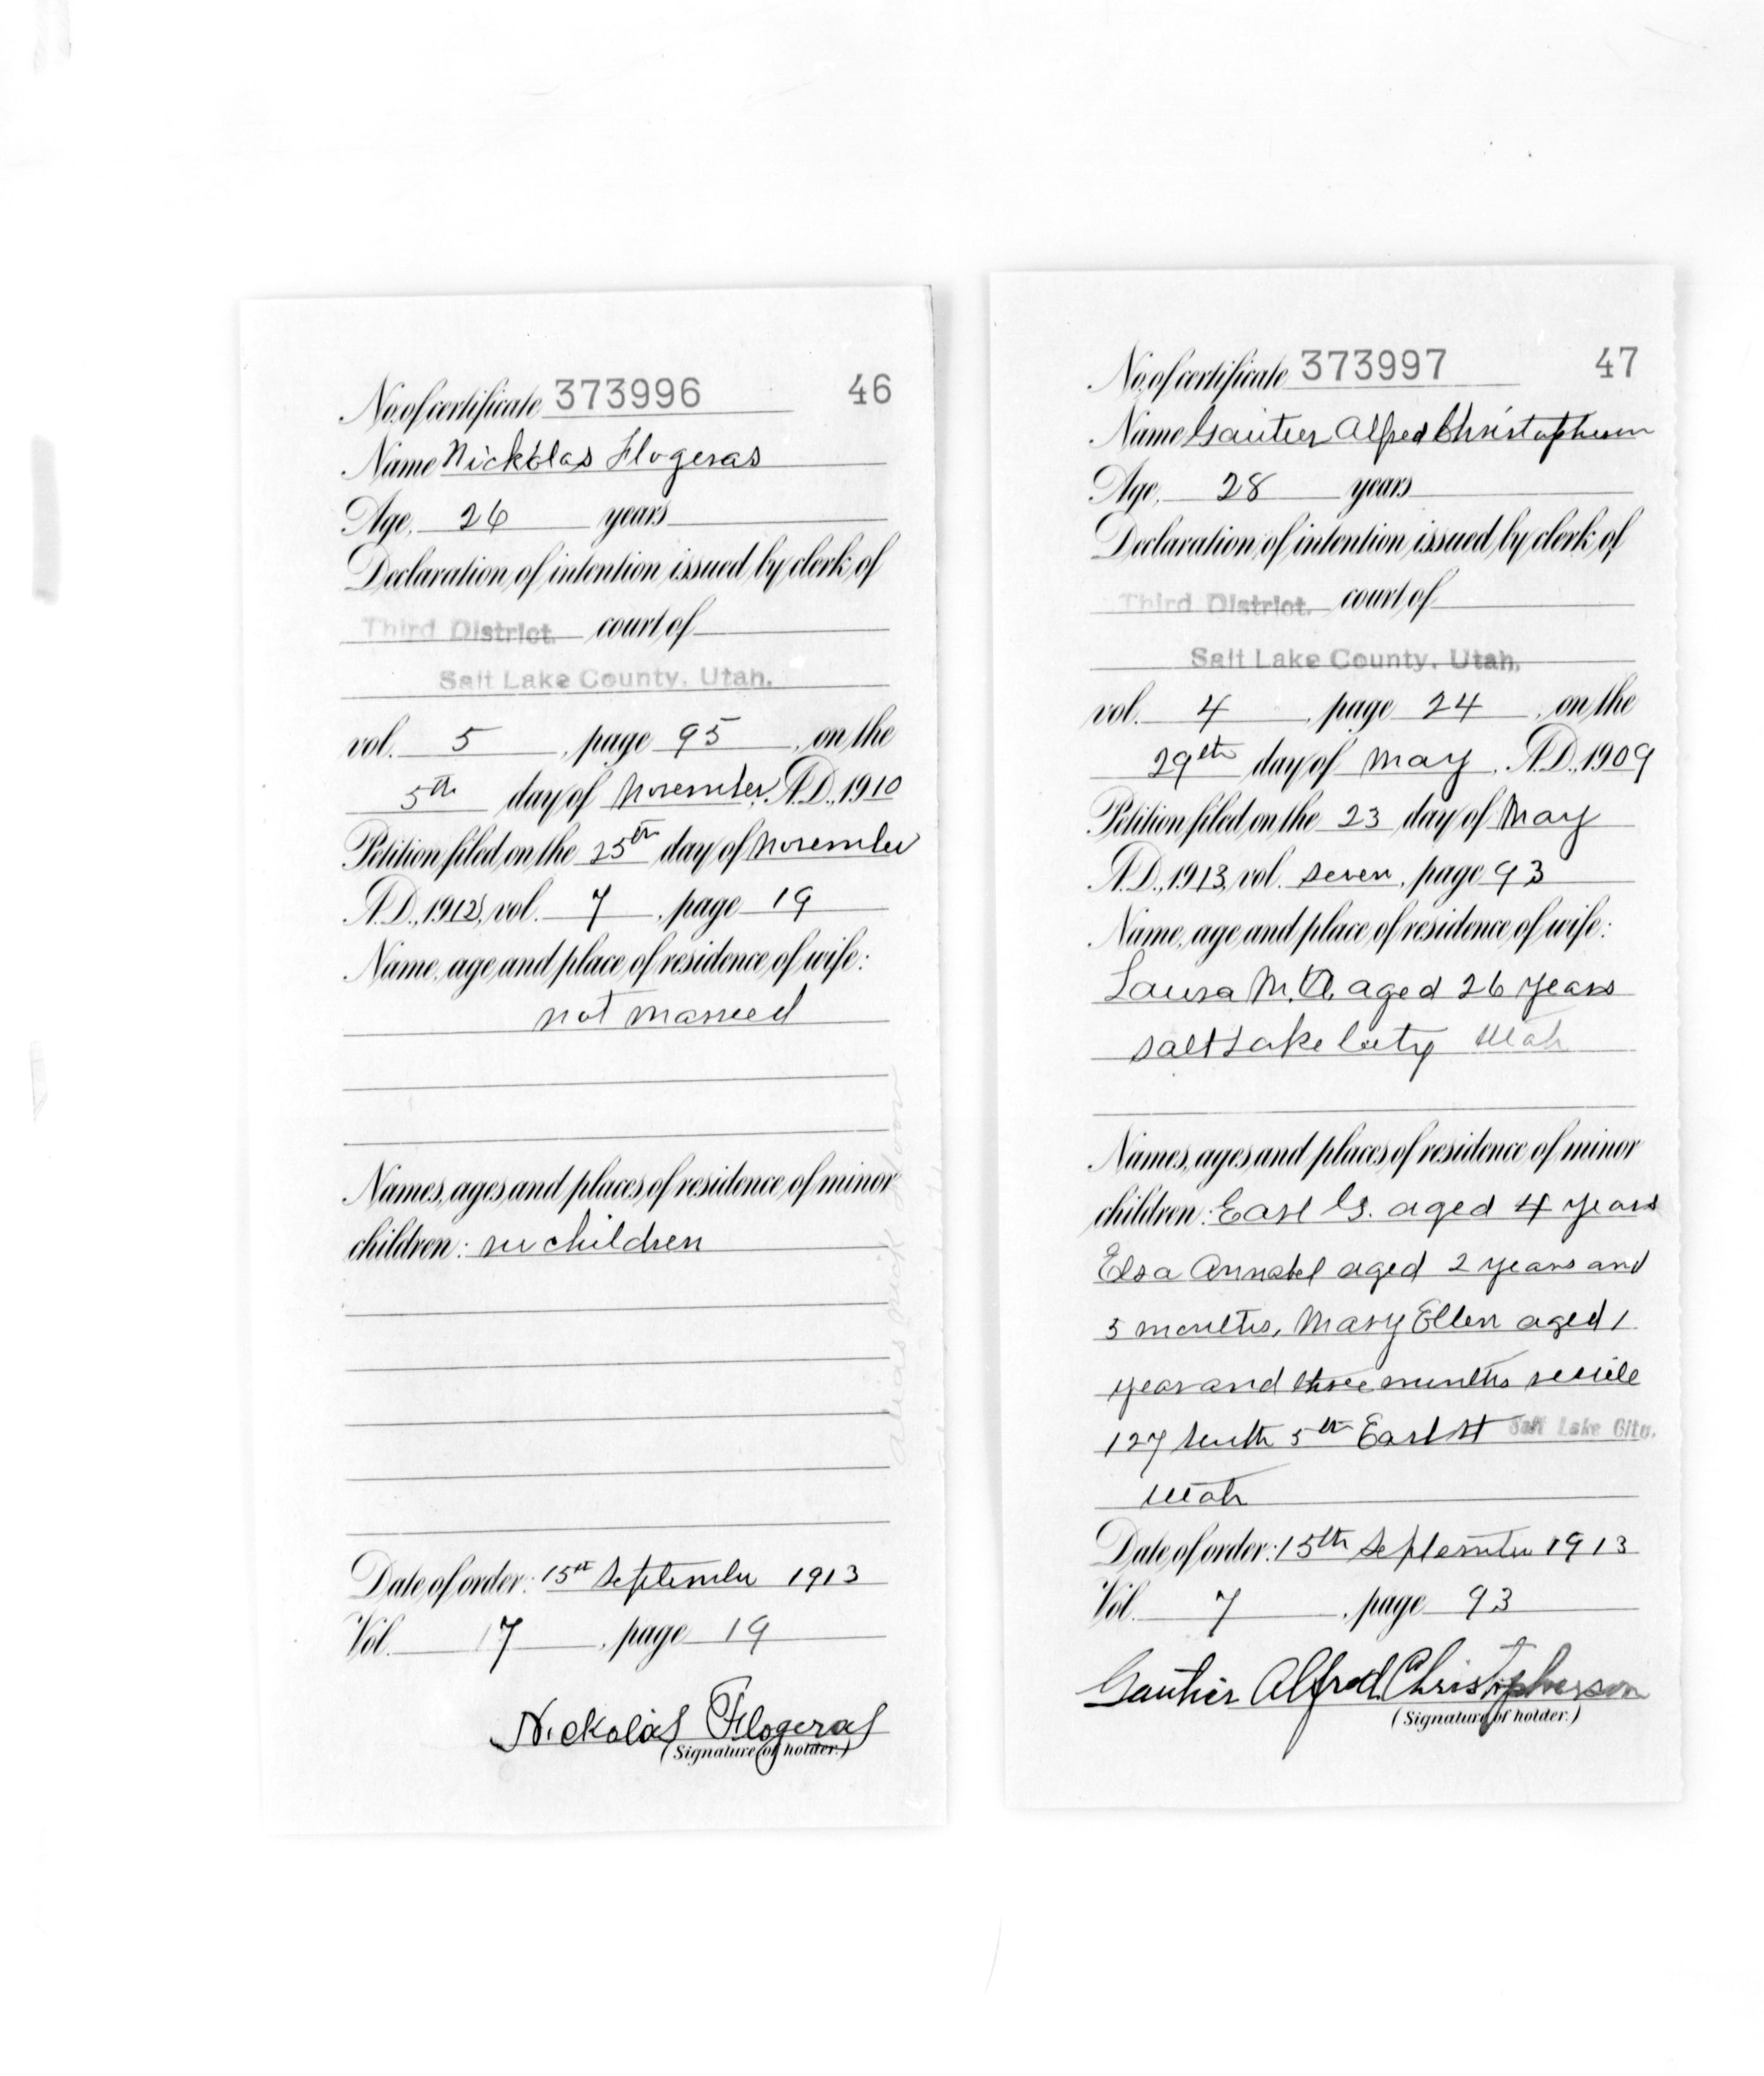 No. of certificate 373996 46
Name Nickolas Flogeras
Age, 26 years
Declaration of intention issued by clerk of
Third District. court of
Salt Lake County, Utah.
vol. 5, page 95, on the
5th day of November, A.D., 1910
Petition filed on the 25th day of November
A.D., 1912, vol. 7, page 19
Name, age and place of residence of wife:
not married
Names, ages and places of residence of minor
children: no children
Date of order: 15th September 1913
Vol. 7, page 19
Nickolas Flogeras
(Signature of holder.)
alias Nick
No. of certificate 373997 47
Name Gautier Alfred Christopherson
Age, 28 years
Declaration of intention issued by clerk of
Third District. court of
Salt Lake County, Utah.
vol. 4, page 24, on the
29th day of May, A.D., 1909
Petition filed on the 23 day of May
A.D., 1913, vol. seven, page 93
Name, age and place of residence of wife:
Laura M.A. aged 26 years
Salt Lake City Utah
Names, ages and places of residence of minor
children: Earl G. aged 4 years
Elsa Annabel aged 2 years and
5 months, Mary Ellen aged 1
year and three months reside
127 South 5th East St Salt Lake City.
Utah
Date of order: 15th September 1913
Vol. 7, page 93
Gautier Alfred Christopherson
(Signature of holder.)